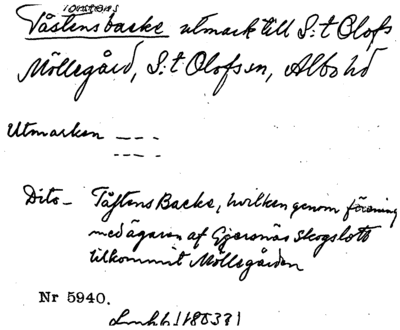 Torstens
Tåstensbacke utmark till S:t Olofs
Möllegård, S:t Olofs sn, Albo hd
Utmarken — — —
— — —
Dito – Tåstens Backe, hvilken genom förening
med ägaren af Gjersnäs Skogslott
tillkommit Möllegården
Nr 5940.